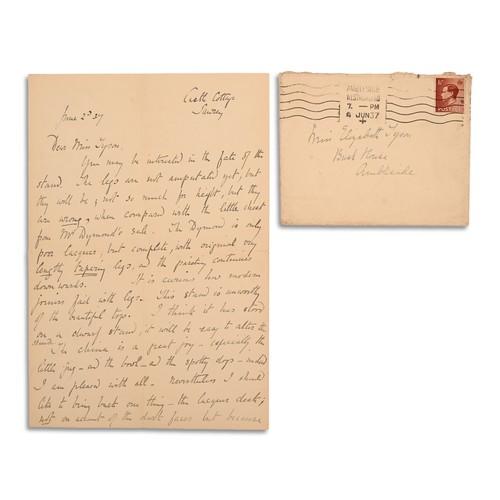 Castle Cottage
Sawrey
June 2nd 37
Dear Miss Tyson,
You may be interested in the fate of the
stand. The legs are not amputated yet, but
they will be; not so much for height, but they
are wrong, when compared with the little chest
from Mr Dymond's sale. The Dymond is only
poor lacquer, but complete, with original very
lengthy tapering legs, and the painting continues
downwards. It is curious how modern
joiners fail with legs. This stand is unworthy
of the beautiful top. I think it has stood
on a dwarf stand, it will be easy to alter the
stand.
The china is a great joy - especially the
little jug - and the bowl - and the spotty dogs - indeed
I am pleased with all. Nevertheless I should
like to bring back one thing - the lacquer desk;
not on account of the dark faces but because
AMBLESIDE
WESTMORLAND
7. PM
4 JUN 37
Miss Elizabeth Tyson
Bush House
Ambleside